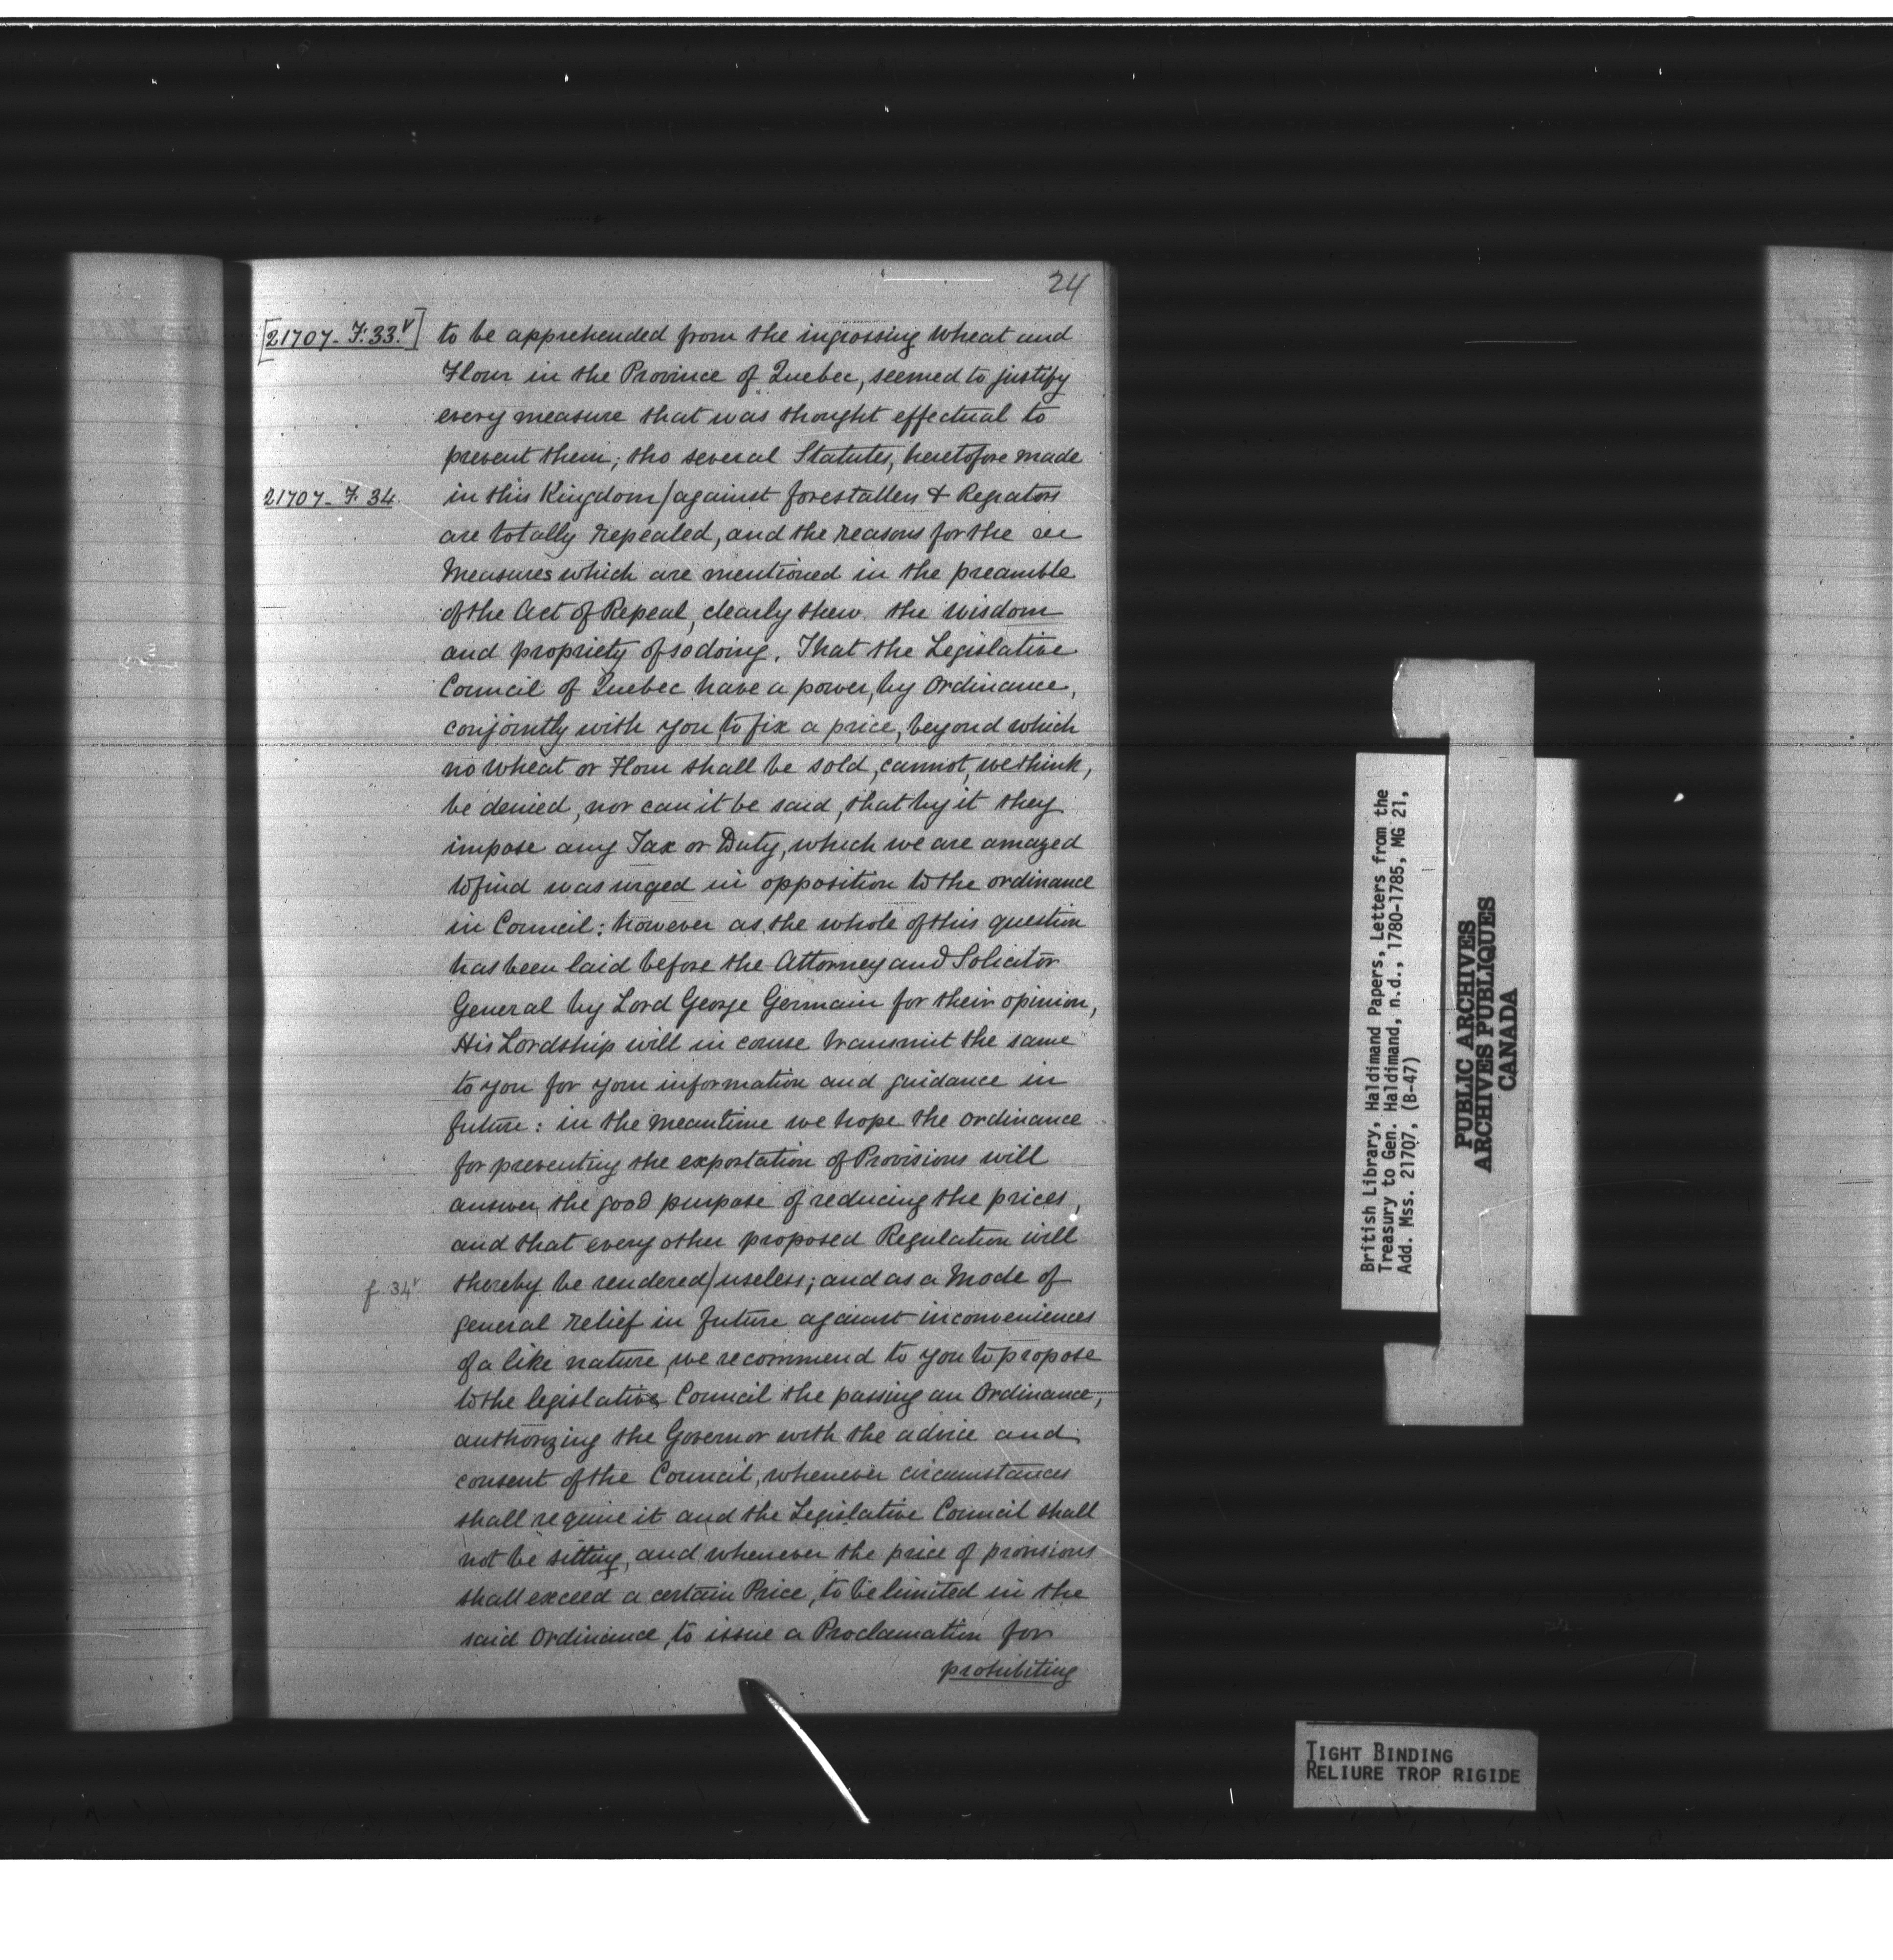 24
[21707-F.33.v] to be apprehended from the ingrossing Wheat and
Flour in the Province of Quebec, seemed to justify
every measure that was thought effectual to
prevent them; tho several Statutes, heretofore made
21707-F.34. in this Kingdom/against forestallers & Regrators
are totally repealed, and the reasons for the
Measures which are mentioned in the preamble
of the Act of Repeal, clearly shew the wisdom
and propriety of so doing. That the Legislative
Council of Quebec have a power, by Ordinance,
conjointly with you, to fix a price, beyond which
no wheat or Flour shall be sold, cannot, we think,
be denied, nor can it be said, that by it they
impose any Tax or Duty, which we are amazed
to find was urged in opposition to the ordinance
in Council: however as the whole of this question
has been laid before the Attorney and Solicitor
General by Lord George Germain for their opinion,
His Lordship will in course transmit the same
to you for your information and guidance in
future: in the meantime we hope the ordinance
for preventing the exportation of Provisions will
answer the good purpose of reducing the prices,
and that every other proposed Regulation will
f. 34v. thereby be rendered/useless; and as a Mode of
general relief in future against inconveniences
of a like nature, we recommend to you to propose
to the legislative Council the passing an Ordinance,
authorizing the Governor with the advice and
consent of the Council, whenever circumstances
shall require it and the Legislative Council shall
not be sitting, and whenever the price of provisions
shall exceed a certain Price, to be limited in the
said Ordinance, to issue a Proclamation for
prohibiting
British Library, Haldimand Papers, Letters from the
Treasury to Gen. Haldimand, n.d., 1780-1785, MG 21,
Add. Mss. 21707, (B-47)
PUBLIC ARCHIVES
ARCHIVES PUBLIQUES
CANADA
TIGHT BINDING
RELIURE TROP RIGIDE